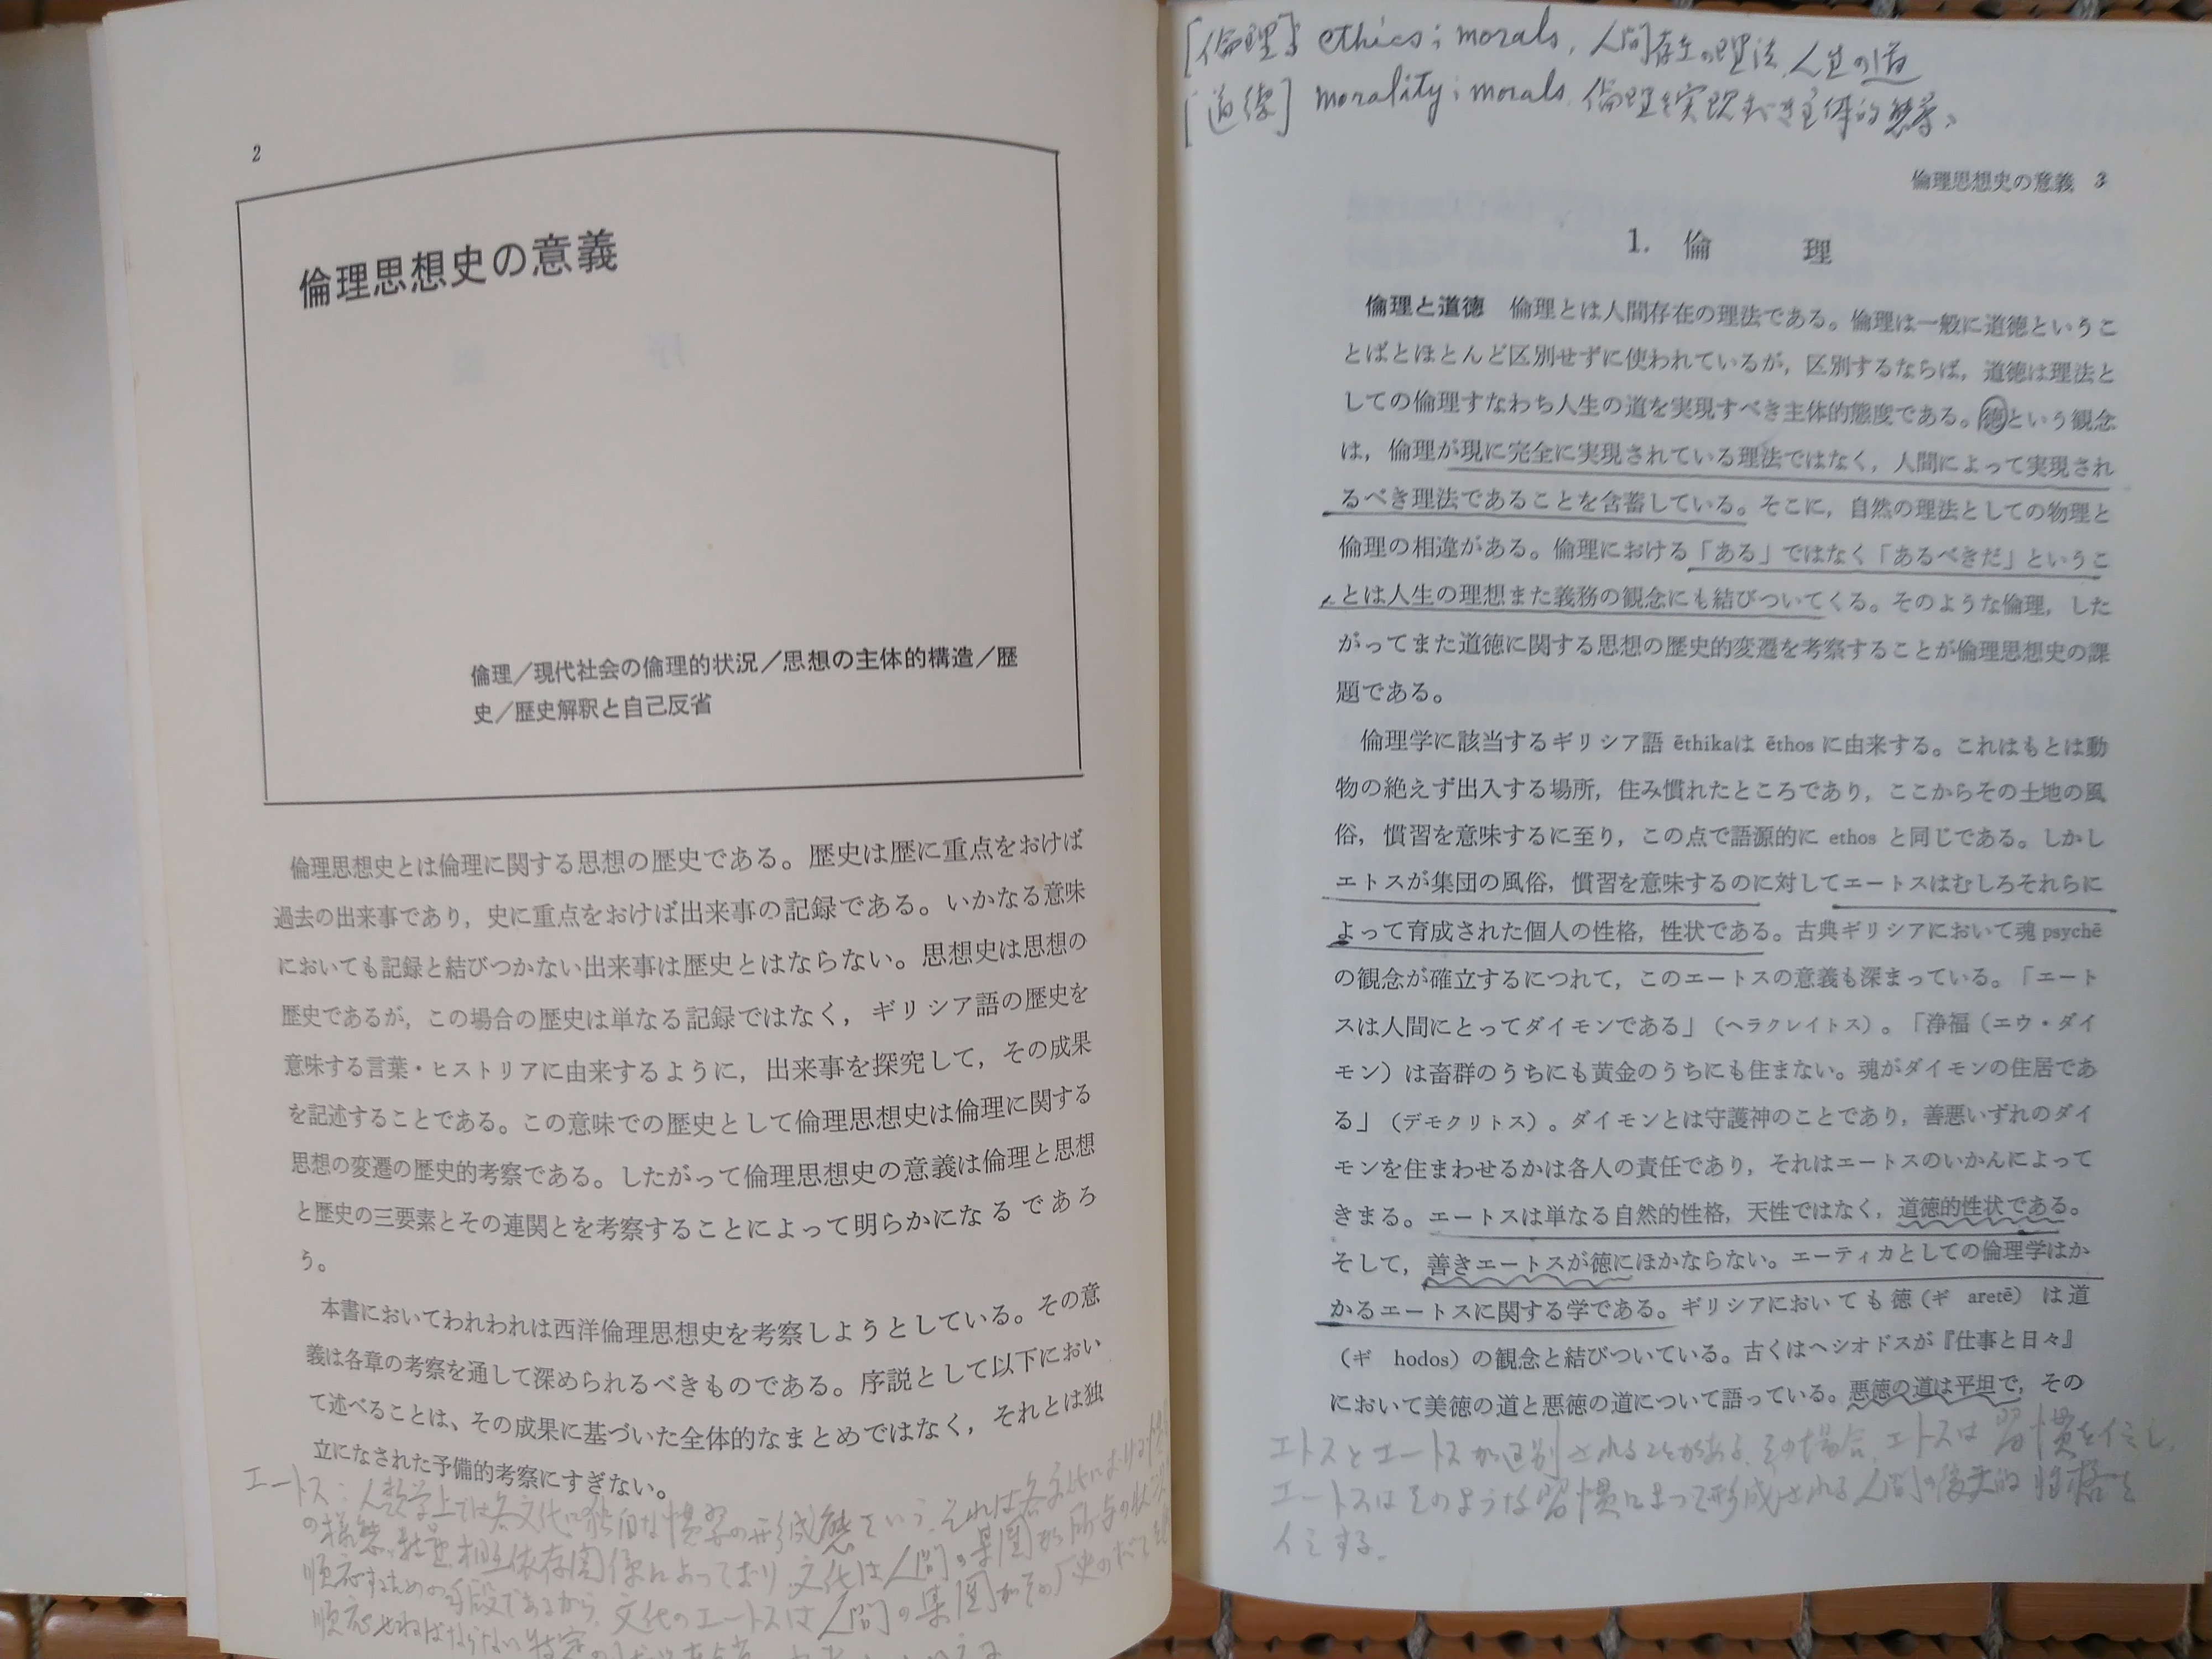 2
倫理思想史の意義
倫理／現代社会の倫理的状況／思想の主体的構造／歴
史／歴史解釈と自己反省
倫理思想史とは倫理に関する思想の歴史である。歴史は歴に重点をおけば
過去の出来事であり，史に重点をおけば出来事の記録である。いかなる意味
においても記録と結びつかない出来事は歴史とはならない。思想史は思想の
歴史であるが，この場合の歴史は単なる記録ではなく，ギリシア語の歴史を
意味する言葉・ヒストリアに由来するように，出来事を探究して，その成果
を記述することである。この意味での歴史として倫理思想史は倫理に関する
思想の変遷の歴史的考察である。したがって倫理思想史の意義は倫理と思想
と歴史の三要素とその連関とを考察することによって明らかになるであろ
う。
本書においてわれわれは西洋倫理思想史を考察しようとしている。その意
義は各章の考察を通して深められるべきものである。序説として以下におい
て述べることは、その成果に基づいた全体的なまとめではなく，それとは独
立になされた予備的考察にすぎない。
エートス：人類学上では各文化に独自な慣習の形成態という。それは各文化における
の様態、相互依存関係によっており 文化は人間の集団が所与の
順応するための手段であるから、文化のエートスは人間の集団がその
順応せねばならない特定の
[倫理] ethics; morals, 人間存在の理法、人生の道
[道徳] morality; morals. 倫理を実現すべき主体的態度、
倫理思想史の意義 3
1. 倫 理
倫理と道徳 倫理とは人間存在の理法である。倫理は一般に道徳というこ
とばとほとんど区別せずに使われているが，区別するならば，道徳は理法と
しての倫理すなわち人生の道を実現すべき主体的態度である。徳という観念
は，倫理が現に完全に実現されている理法ではなく，人間によって実現され
るべき理法であることを含蓄している。そこに，自然の理法としての物理と
倫理の相違がある。倫理における「ある」ではなく「あるべきだ」というこ
とは人生の理想また義務の観念にも結びついてくる。そのような倫理，した
がってまた道徳に関する思想の歴史的変遷を考察することが倫理思想史の課
題である。
倫理学に該当するギリシア語 ēthikaは ēthos に由来する。これはもとは動
物の絶えず出入する場所，住み慣れたところであり，ここからその土地の風
俗，慣習を意味するに至り，この点で語源的に ethos と同じである。しかし
エトスが集団の風俗，慣習を意味するのに対してエートスはむしろそれらに
よって育成された個人の性格，性状である。古典ギリシアにおいて魂 psychē
の観念が確立するにつれて，このエートスの意義も深まっている。「エート
スは人間にとってダイモンである」（ヘラクレイトス）。「浄福（エウ・ダイ
モン）は畜群のうちにも黄金のうちにも住まない。魂がダイモンの住居であ
る」（デモクリトス）。ダイモンとは守護神のことであり，善悪いずれのダイ
モンを住まわせるかは各人の責任であり，それはエートスのいかんによって
きまる。エートスは単なる自然的性格，天性ではなく，道徳的性状である。
そして，善きエートスが徳にほかならない。エーティカとしての倫理学はか
かるエートスに関する学である。ギリシアにおいても徳（ギ aretē）は道
（ギ hodos）の観念と結びついている。古くはヘシオドスが『仕事と日々』
において美徳の道と悪徳の道について語っている。悪徳の道は平坦で，その
エトスとエートスが区別されることがある。その場合、エトスは習慣を意味し、
エートスはそのような習慣によって形成される人間の後天的性格を
意味する。